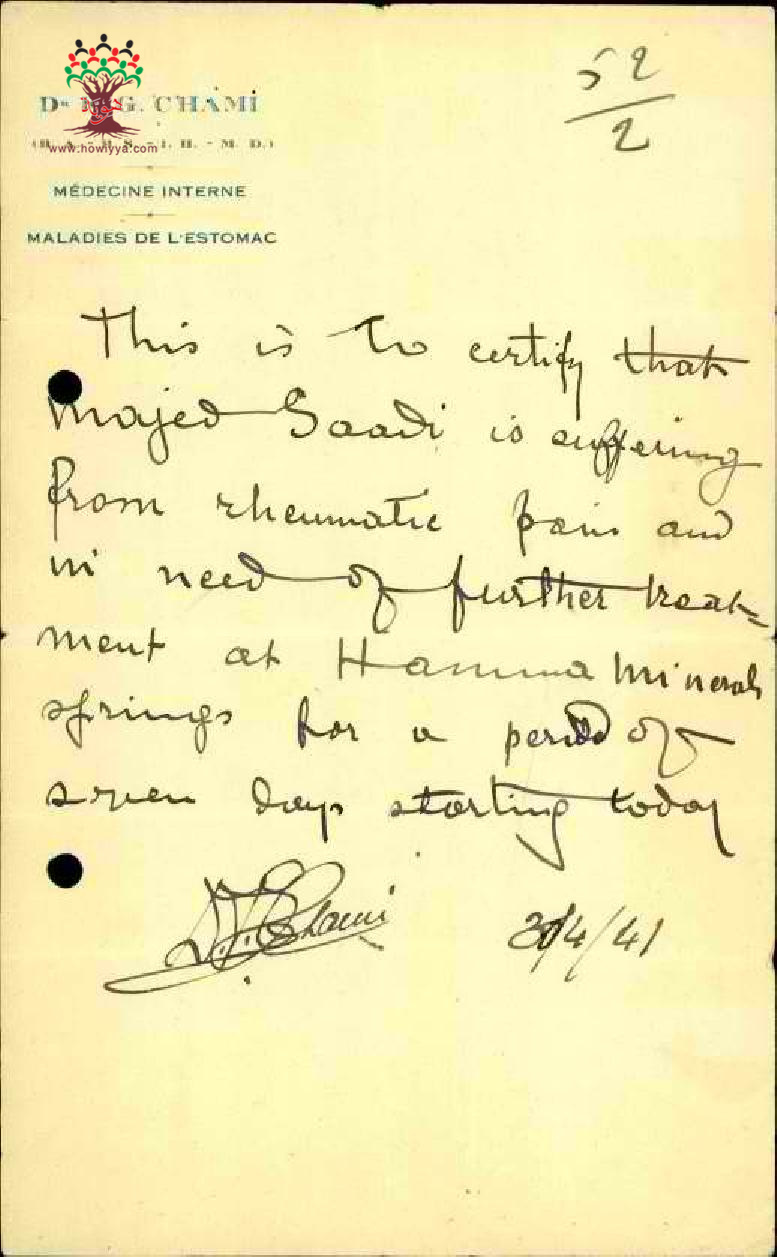 52
2
Dr G. CHAMI
www.howiyya.com
H. - M. D.)
MÉDECINE INTERNE
MALADIES DE L'ESTOMAC
This is to certify that
Majed Saadi is suffering
from rheumatic pain and
in need of further treat-
ment at Hamma Minerals
springs for a period of
seven days starting today
Chami /4/41